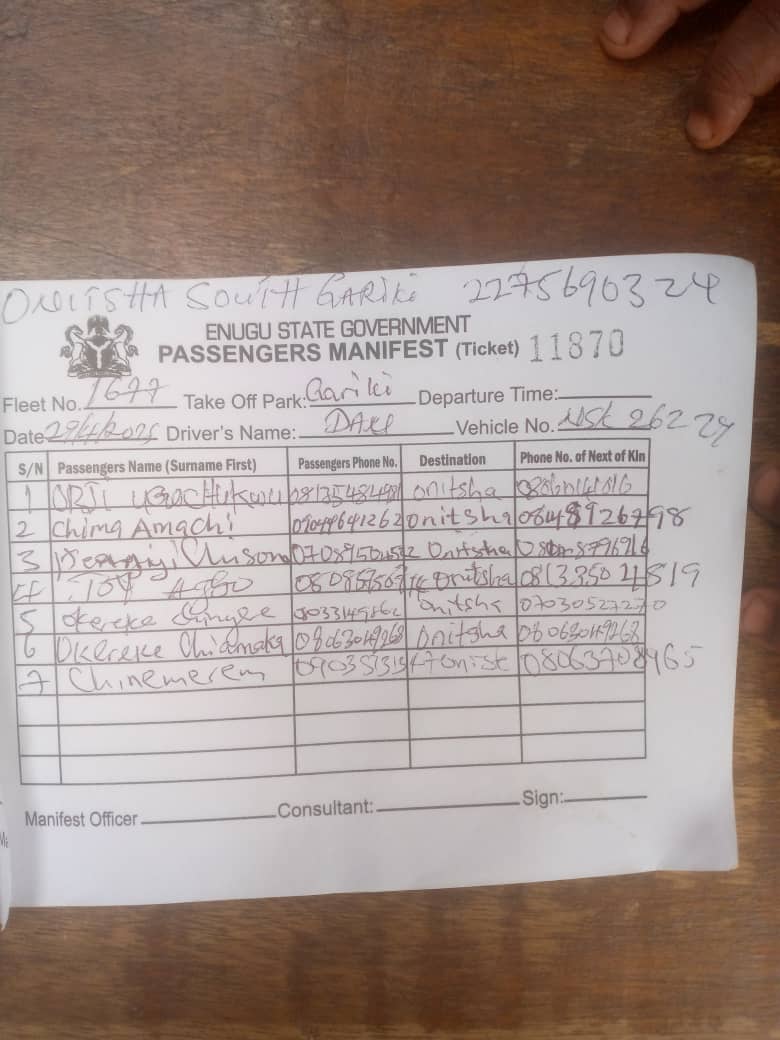 ONITSHA SOUTH GARIKI 2275690324
ENUGU STATE GOVERNMENT
PASSENGERS MANIFEST (Ticket) 11870
Fleet No. 1677 Take Off Park: Gariki Departure Time:
Date 29/4/2025 Driver's Name: Vehicle No. NSK 262 24
S/N Passengers Name (Surname First) Passengers Phone No. Destination Phone No. of Next of Kin
1 ORJI UGOCHUKWU onitsha
2 Chima Amachi 07049641262 onitsha 08489126798
3 Onitsha
4 Joy Onitsha 08133504819
5 Okereke 08033149862 Onitsha 07030527270
6 Okereke Chiamaka 08063049268 Onitsha 08063049268
7 Chinemerem 08063708465
Manifest Officer Consultant: Sign: